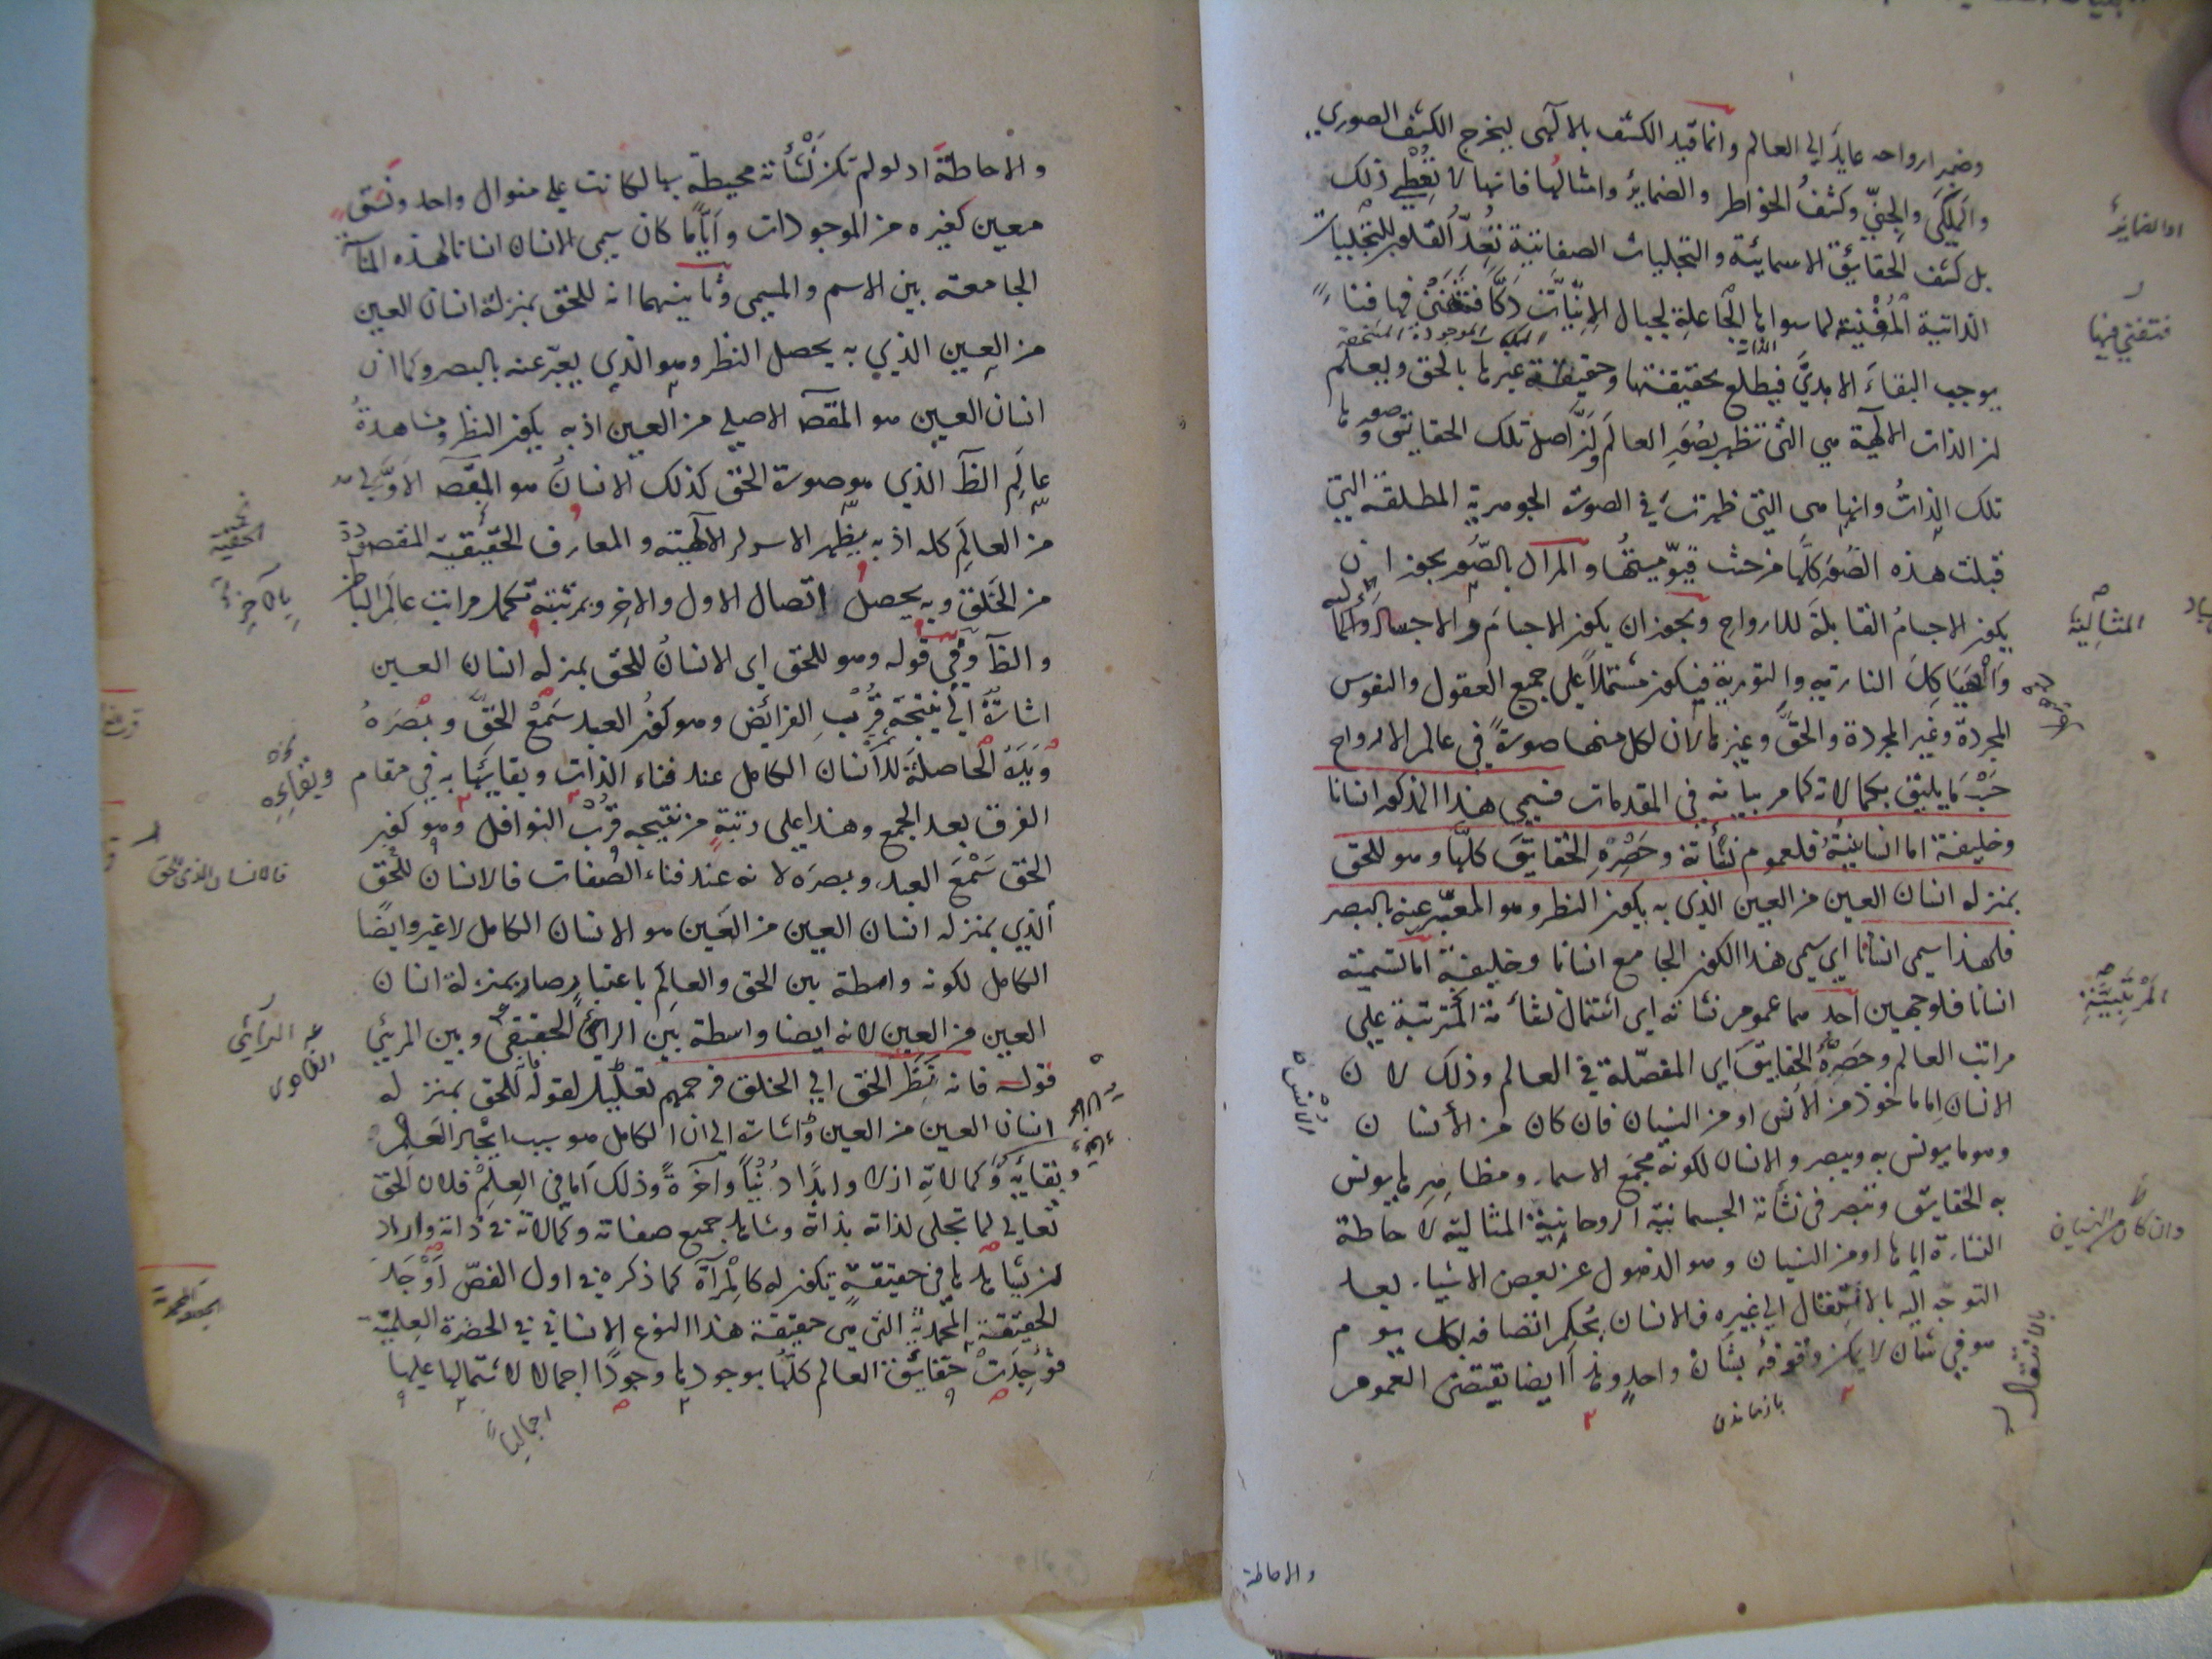 وضمير ارواحه عايد الي العالم وانما قيد الكشف بالالهى ليخرج الكشف الصوري
والملكي والجني وكشف الخواطر والضمائر وامثالها فانها لا تعطي ذلك
بل كشف الحقايق الاسمائية والتجليات الصفاتية تعد القلوب للتجليات
الذاتية المفنية لما سواها الجاعلة لجبال الانيات دكا فتفنى فيها فناء
يوجب البقاء الابدي فيطلع بحقيقتها وحقيقة غيرها بالحق ويعلم
لن الذات الالهية هي التى تظهر بصور العالم ولن اصل تلك الحقايق وصورها
تلك الذات وانها هي التى ظهرت في الصورة الجوهرية المطلقة التي
قبلت هذه الصور كلها من حيث قيوميتها والمراد بالصور يجوز ان
يكون الاجسام القابلة للارواح ويجوز ان يكون الاجسام والاجساد
والهياكل النارية والنورية فيكون مشتملا على جميع العقول والنفوس
المجردة وغير المجردة والحق وغيرها لان لكل منها صورة في عالم الارواح
حسب ما يليق بكمالاته كما مر بيانه في المقدمات فسمي هذا المذكور انسانا
وخليفة اما انسانيته فلعموم نشأته وحصره الحقايق كلها وهو للحق
بمنزلة انسان العين من العين الذي به يكون النظر وهو المعبر عنه بالبصر
فلهذا سمي انسانا اي سمى هذا الكون الجامع انسانا وخليفة اما تسميته
انسانا فلوجهين احدهما عموم نشأته اى اشتمال نشأته المرتبية علي
مراتب العالم وحصره الحقايق اي المفصلة في العالم وذلك لان
الانسان اما ماخوذ من الانس او من النسيان فان كان من الانس ن
وهو ما يونس به ويبصر والانسان لكونه مجمع الاسماء ومظاهرها يونس
به الحقايق وتبصر في نشأته الجسمانية الروحانية المثالية لاحاطة
النشأة اياها او من النسيان وهو الذهول عن بعض الاشياء بعد
التوجه اليه بالاشتغال الي غيره فالانسان بحكم اتصافه بكل يوم
هو في شان لا يمكن وقوفه بشان واحد وهذا ايضا يقتضى العموم
والاحاطة
او الضماير
فتفني فيها
المثالية
المرتبية
الانس
وان كان من النسيان
بالاشتغال
بازماندن
والاحاطة اذ لو لم تكن نشأته محيطة بها لكانت علي منوال واحد ونسق
معين كغيره من الموجودات وأيا ما كان سمي الانسان انسانا لهذه المناسبة
الجامعة بين الاسم والمسمى وثانيهما انه للحق بمنزلة انسان العين
من العين الذي به يحصل النظر وهو الذي يعبر عنه بالبصر وكما ان
انسان العين هو المقصد الاصلي من العين اذ به يكون النظر ومشاهدة
عالم الظاهر الذي هو صورة الحق كذلك الانسان هو المقصد الاولي
من العالم كله اذ به يظهر الاسرار الالهية والمعارف الحقيقية المقصودة
من الخلق وبه يحصل اتصال الاول والاخر وبمرتبته تكمل مراتب عالم الباطن
والظاهر وفي قوله وهو للحق اي الانسان للحق بمنزلة انسان العين
اشارة الي نتيجة قرب الفرائض وهو كون العبد سمع الحق وبصره
ويده الحاصلة للانسان الكامل عند فناء الذات وبقايها به في مقام
الفرق بعد الجمع وهذا اعلي رتبة من نتيجة قرب النوافل وهو كون
الحق سمع العبد وبصره لانه عند فناء الصفات فالانسان للحق
الذي بمنزلة انسان العين من العين هو الانسان الكامل لا غير وايضا
الكامل لكونه واسطة بين الحق والعالم باعتبار صار بمنزلة انسان
العين من العين لانه ايضا واسطة بين الرائي الحقيقي وبين المرئي
قوله فانه به نظر الحق الي الخلق فرحمهم تعليل لقوله للحق بمنزلة
انسان العين من العين واشارة الي ان الكامل هو سبب ايجاد العالم
وبقائه وكمالاته ازلا وابدا دنيا وآخرة وذلك اما في العلم فلان الحق
تعالي لما تجلى لذاته بذاته وشاهد جميع صفاته وكمالاته في ذاته واراد
لن يشاهدها في حقيقة تكون له كالمرآة كما ذكره في اول الفص اوجد
الحقيقة المحمدية التى هي حقيقة هذا النوع الانساني في الحضرة العلمية
فوجدت حقائق العالم كلها بوجودها وجودا اجماليا لاشتمالها عليها
الحقية
بالآخر
وبقاءه
فالانسان الذي للحق
الرائي
اجماليا